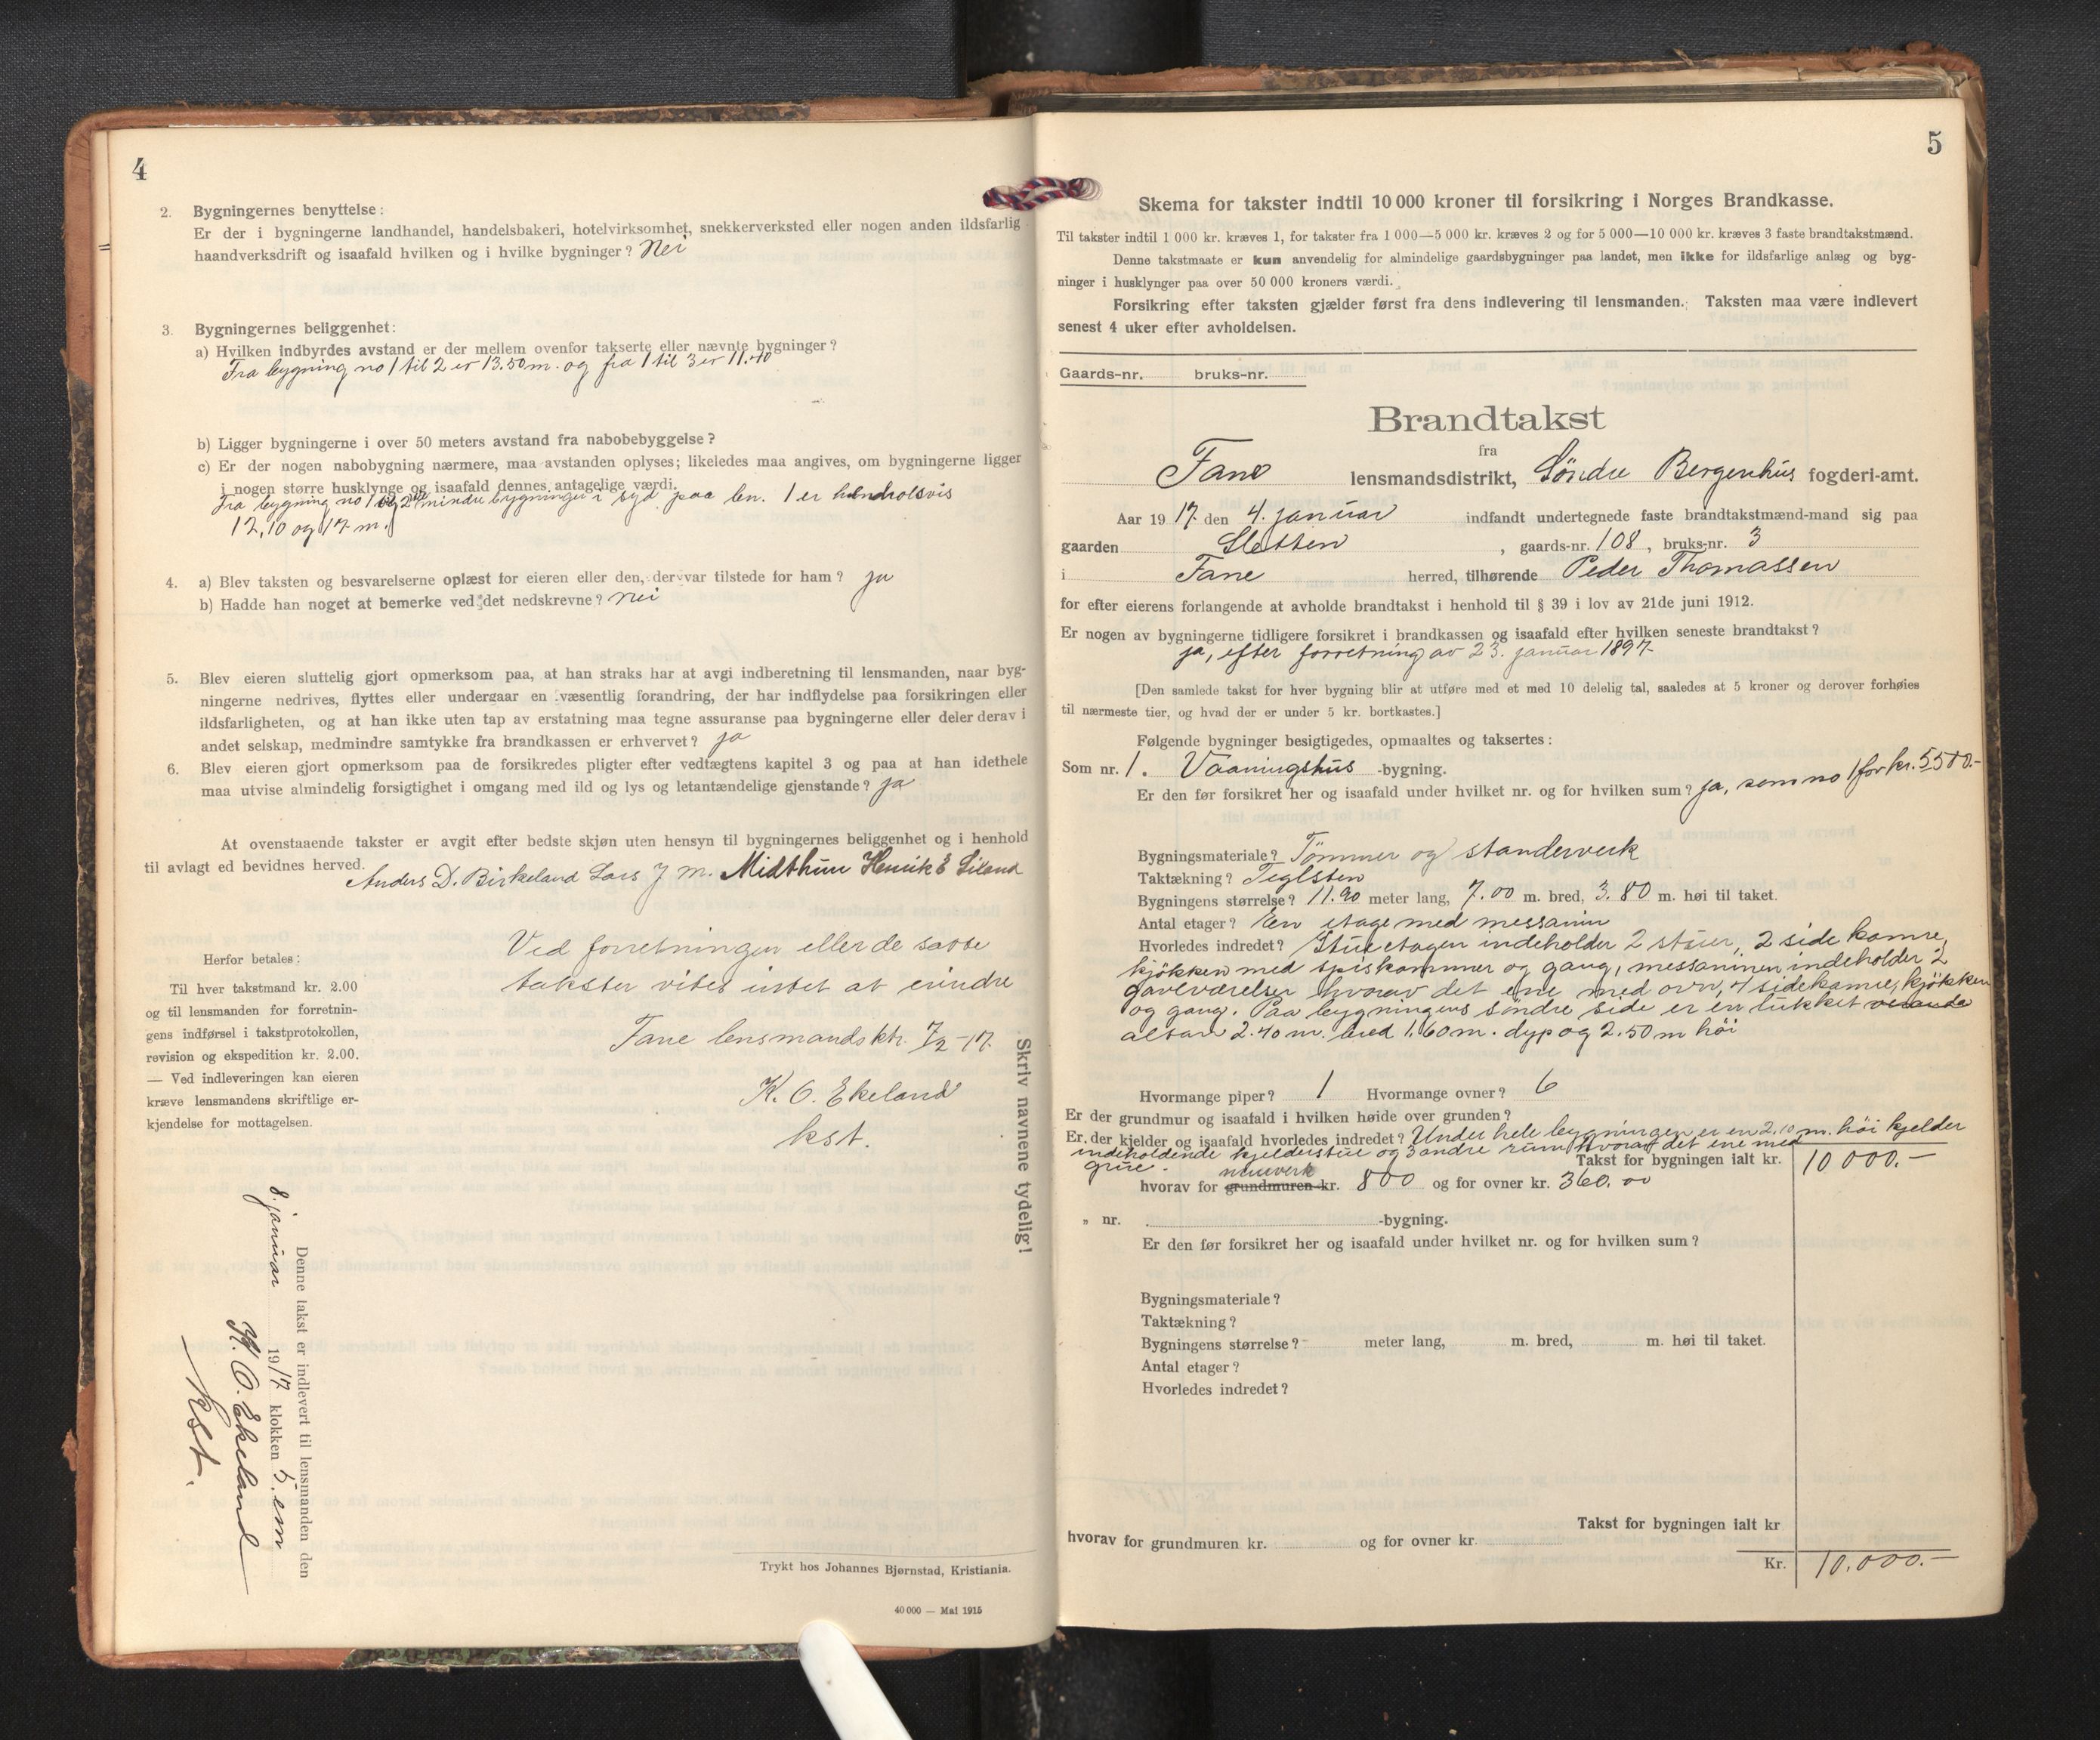 4
2. Bygningernes benyttelse:
Er der i bygningerne landhandel, handelsbakeri, hotelvirksomhet, snekkerverksted eller nogen anden ildsfarlig
haandverksdrift og isaafald hvilken og i hvilke bygninger? Nei
3. Bygningernes beliggenhet:
a) Hvilken indbyrdes avstand er der mellem ovenfor takserte eller nævnte bygninger?
Fra bygning no 1 til 2 er 13.50 m. og fra 1 til 3 er 11.40
b) Ligger bygningerne i over 50 meters avstand fra nabobebyggelse?
c) Er der nogen nabobygning nærmere, maa avstanden oplyses; likeledes maa angives, om bygningerne ligger
i nogen større husklynge og isaafald dennes antagelige værdi.
Fra bygning no 1 og 2 mindre bygninger i syd paa bn. 1 er henholsvis
12,10 og 17 m.
4. a) Blev taksten og besvarelserne oplæst for eieren eller den, der var tilstede for ham? ja
b) Hadde han noget at bemerke ved det nedskrevne? nei
5. Blev eieren sluttelig gjort opmerksom paa, at han straks har at avgi indberetning til lensmanden, naar byg-
ningerne nedrives, flyttes eller undergaar en væsentlig forandring, der har indflydelse paa forsikringen eller
ildsfarligheten, og at han ikke uten tap av erstatning maa tegne assuranse paa bygningerne eller deler derav i
andet selskap, medmindre samtykke fra brandkassen er erhvervet? ja
6. Blev eieren gjort opmerksom paa de forsikredes pligter efter vedtægtens kapitel 3 og paa at han idethele
maa utvise almindelig forsigtighet i omgang med ild og lys og letantændelige gjenstande? ja
At ovenstaaende takster er avgit efter bedste skjøn uten hensyn til bygningernes beliggenhet og i henhold
til avlagt ed bevidnes herved.
Anders D. Birkeland Lars J M. Midthun Henrik E Liland
Herfor betales:
Til hver takstmand kr. 2.00
og til lensmanden for forretnin-
gens indførsel i takstprotokollen,
revision og ekspedition kr. 2.00.
— Ved indleveringen kan eieren
kræve lensmandens skriftlige er-
kjendelse for mottagelsen.
Ved forretningen eller de satte
takster vites intet at erindre
Fane lensmandsktr. 7/2 -17.
K. O. Ekeland
kst.
Skriv navnene tydelig!
Denne takst er indlevert til lensmanden den
8. januar 1917 klokken 5. em
K. O. Ekeland
kst.
Trykt hos Johannes Bjørnstad, Kristiania.
40 000 — Mai 1915
5
Skema for takster indtil 10 000 kroner til forsikring i Norges Brandkasse.
Til takster indtil 1 000 kr. kræves 1, for takster fra 1 000—5 000 kr. kræves 2 og for 5 000—10 000 kr. kræves 3 faste brandtakstmænd.
Denne takstmaate er kun anvendelig for almindelige gaardsbygninger paa landet, men ikke for ildsfarlige anlæg og byg-
ninger i husklynger paa over 50 000 kroners værdi.
Forsikring efter taksten gjælder først fra dens indlevering til lensmanden. Taksten maa være indlevert
senest 4 uker efter avholdelsen.
Gaards-nr. bruks-nr.
Brandtakst
fra
Fane lensmandsdistrikt, Söndre Bergenhus fogderi-amt.
Aar 1917. den 4. januar indfandt undertegnede faste brandtakstmænd-mand sig paa
gaarden Sletten, gaards-nr. 108, bruks-nr. 3
i Fane herred, tilhørende Peder Thomassen
for efter eierens forlangende at avholde brandtakst i henhold til § 39 i lov av 21de juni 1912.
Er nogen av bygningerne tidligere forsikret i brandkassen og isaafald efter hvilken seneste brandtakst?
ja, efter forretning av 23. januar 1897.
[Den samlede takst for hver bygning blir at utføre med et med 10 delelig tal, saaledes at 5 kroner og derover forhøies
til nærmeste tier, og hvad der er under 5 kr. bortkastes.]
Følgende bygninger besigtigedes, opmaaltes og taksertes:
Som nr. 1. Vaaningshus -bygning.
Er den før forsikret her og isaafald under hvilket nr. og for hvilken sum? ja, som no 1 for kr. 5500.-
Bygningsmateriale? Tömmer og standerverk
Taktækning? Teglsten
Bygningens størrelse? 11.90 meter lang, 7.00 m. bred, 3.80 m. høi til taket.
Antal etager? En etage med messanin
Hvorledes indredet? Stueetagen indeholder 2 stuer, 2 side kamre,
kjökken med spiskammer og gang, messaninen indeholder 2
gavlværelser hvorav det ene med ovn, 4 sidekamre, kjökken
og gang. Paa bygningens söndre side er en lukket veranda
altan 2.40 m. bred 1.60 m. dyp og 2.50 m höi
Hvormange piper? 1 Hvormange ovner? 6
Er der grundmur og isaafald i hvilken høide over grunden?
Er der kjelder og isaafald hvorledes indredet? Under hele bygningen er en 2.10 m. höi kjelder
indeholdende kjelderstue og 3 andre rum hvorav det ene med
grue.
Takst for bygningen ialt kr. 10 000.—
murverk
hvorav for grundmuren kr. 800 og for ovner kr. 360.00
„ nr. -bygning.
Er den før forsikret her og isaafald under hvilket nr. og for hvilken sum?
Bygningsmateriale?
Taktækning?
Bygningens størrelse? meter lang, m. bred, m. høi til taket.
Antal etager?
Hvorledes indredet?
Takst for bygningen ialt kr
hvorav for grundmuren kr. og for ovner kr
Kr. 10.000.—